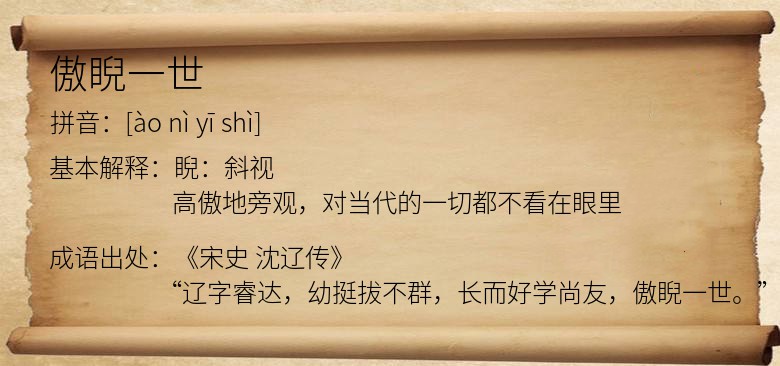 傲睨一世
拼音：[ào nì yī shì]
基本解释：睨：斜视
高傲地旁观，对当代的一切都不看在眼里
成语出处：《宋史 沈辽传》
“辽字睿达，幼挺拔不群，长而好学尚友，傲睨一世。”